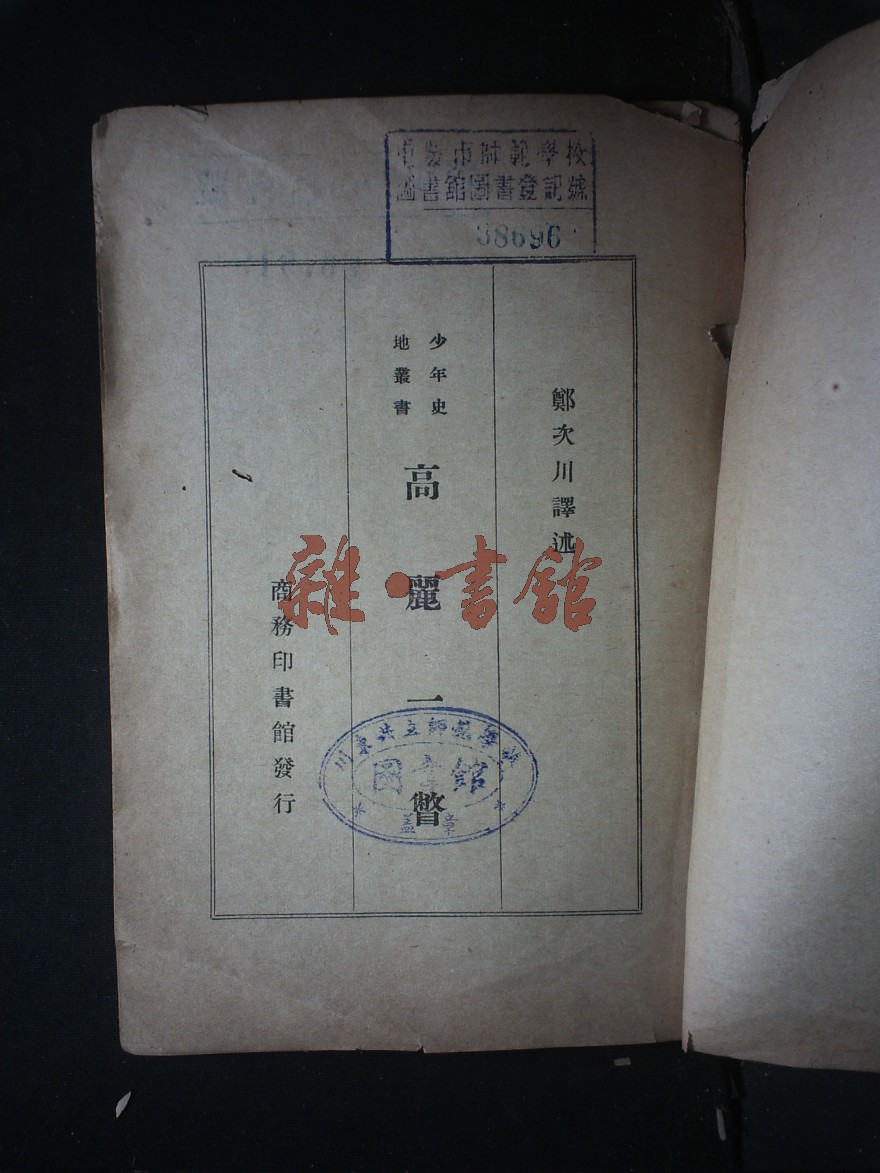 市師範學校
圖書館圖書登記號
38696
鄭次川譯述
少年史
地叢書
高麗一瞥
商務印書館發行
雜·書館
川東共立師範學校
圖書館
蓋章